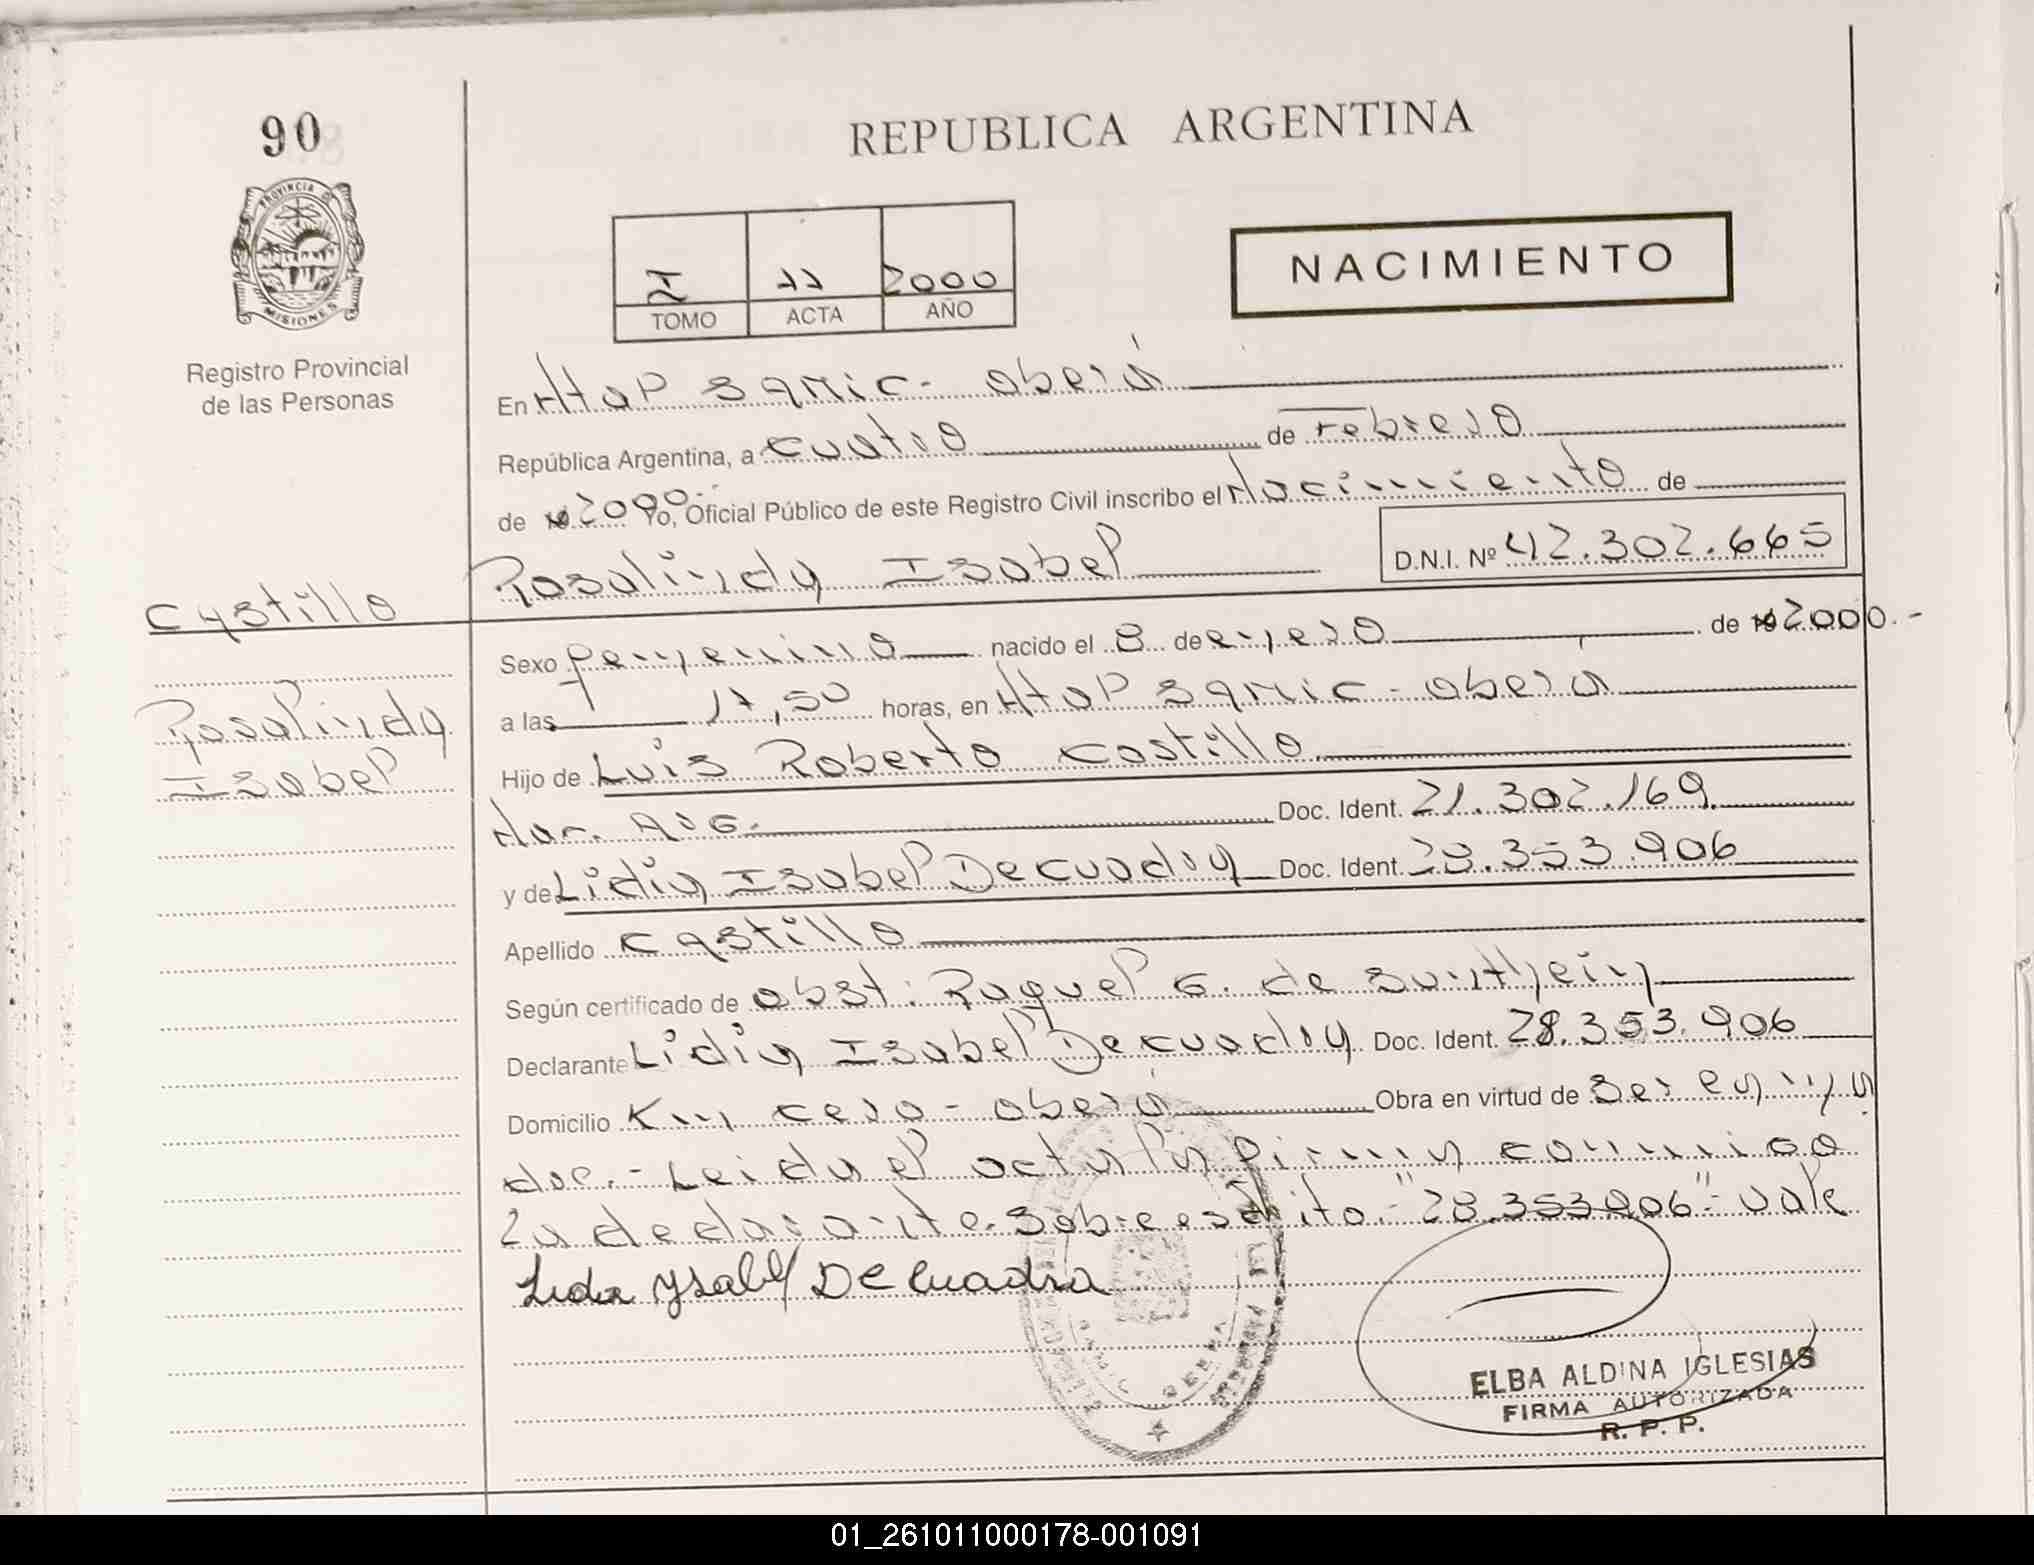 90
REPUBLICA ARGENTINA
PROVINCIA DE
MISIONES
Registro Provincial
de las Personas
I 11 2000
TOMO ACTA AÑO
NACIMIENTO
En Htal Samic - Oberá
República Argentina, a cuatro de Febrero
de 2000.- Yo, Oficial Público de este Registro Civil inscribo el Nacimiento de
Rosalinda Isabel D.N.I. Nº 42.302.665
Castillo
Rosalinda
Isabel
Sexo femenino nacido el 8 de enero de 2000.-
a las 17,50 horas, en Htal Samic - Oberá
Hijo de Luis Roberto Castillo
Nac. Arg. Doc. Ident. 21.302.169
y de Lidia Isabel De cuadra Doc. Ident. 28.353.906
Apellido Castillo
Según certificado de obst. Raquel G. de
Declarante Lidia Isabel De cuadra Doc. Ident. 28.353.906
Domicilio Km cero - Oberá Obra en virtud de Ser
Leida el acta la firma conmigo
La declarante. Sobre escrito "28.353906" - vale
Lidia Ysabel De Cuadra
ELBA ALDINA IGLESIAS
FIRMA AUTORIZADA
R. P. P.
01_261011000178-001091